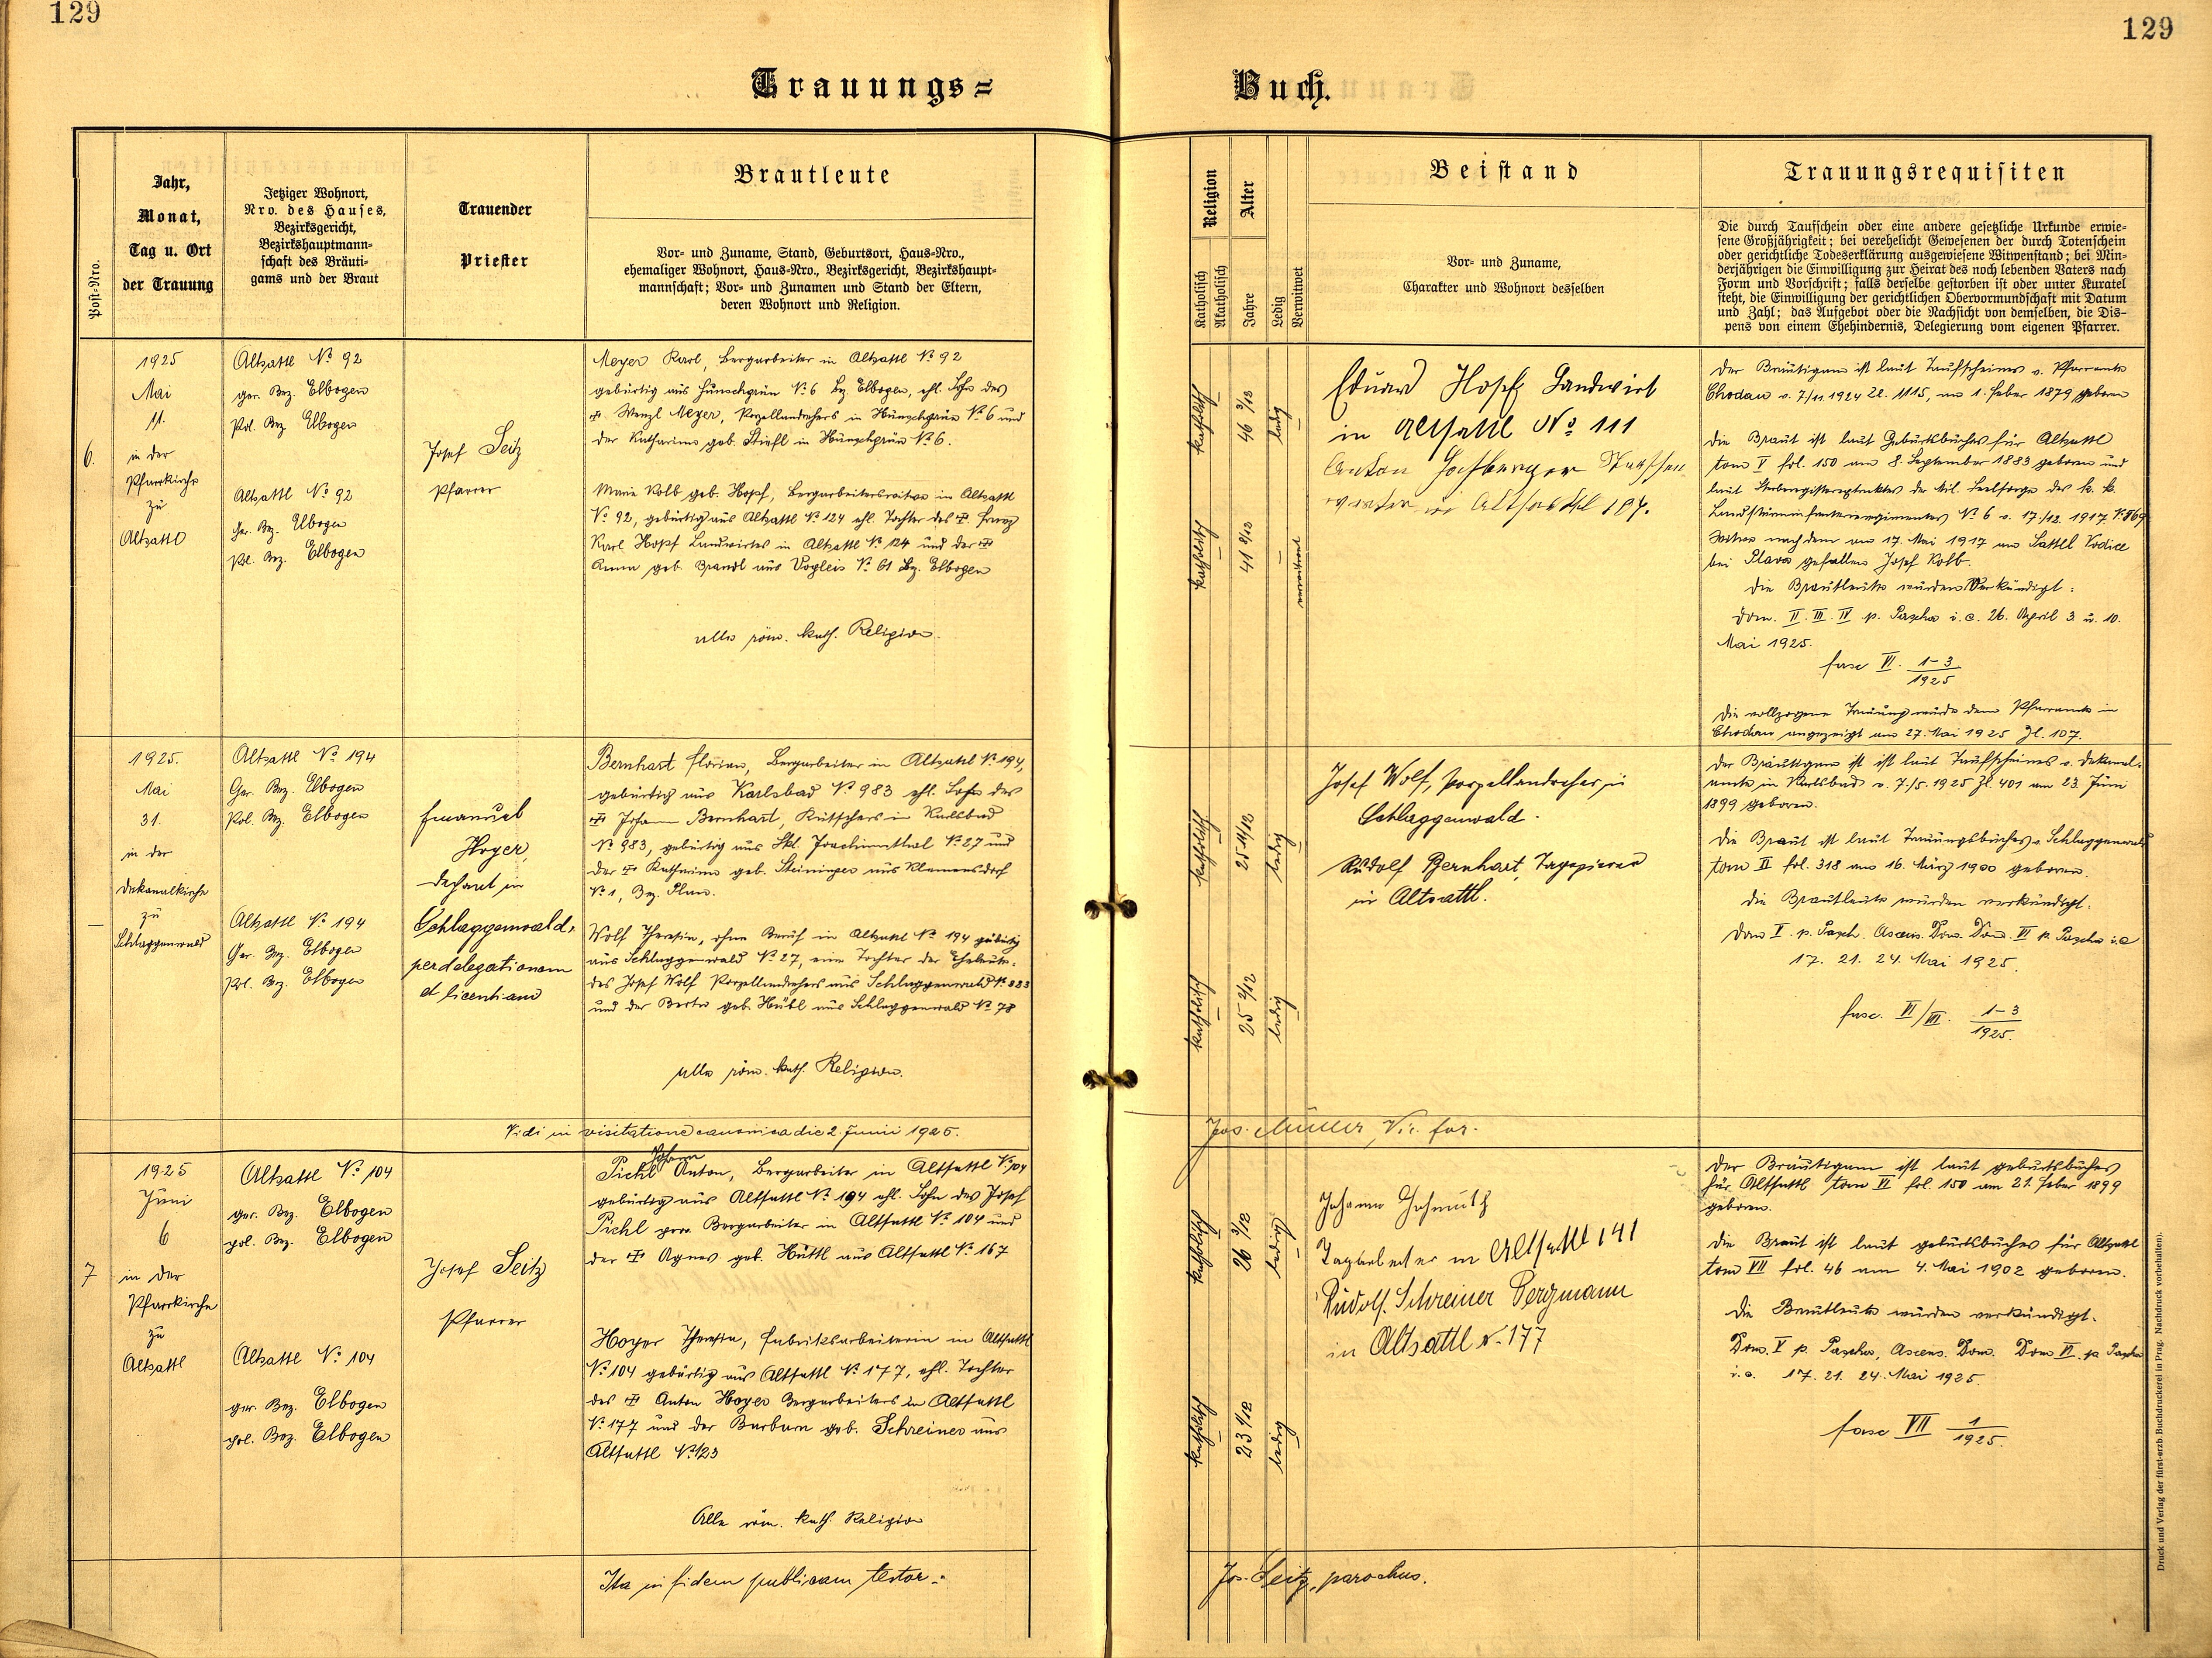 129
129
Trauungs=
Buch.
Post-Nro.
Jahr,
Monat,
Tag u. Ort
der Trauung
Jetziger Wohnort,
Nro. des Hauses,
Bezirksgericht,
Bezirkshauptmann-
schaft des Bräuti-
gams und der Braut
Trauender
Priester
Brautleute
Vor- und Zuname, Stand, Geburtsort, Haus-Nro.,
ehemaliger Wohnort, Haus-Nro., Bezirksgericht, Bezirkshaupt-
mannschaft; Vor- und Zunamen und Stand der Eltern,
deren Wohnort und Religion.
Religion
Katholisch
Akatholisch
Alter
Jahre
Ledig
Verwitwet
Beistand
Vor- und Zuname,
Charakter und Wohnort desselben
Trauungsrequisiten
Die durch Taufschein oder eine andere gesetzliche Urkunde erwie-
sene Großjährigkeit; bei verehelicht Gewesenen der durch Totenschein
oder gerichtliche Todeserklärung ausgewiesene Witwenstand; bei Min-
derjährigen die Einwilligung zur Heirat des noch lebenden Vaters nach
Form und Vorschrift; falls derselbe gestorben ist oder unter Kuratel
steht, die Einwilligung der gerichtlichen Obervormundschaft mit Datum
und Zahl; das Aufgebot oder die Nachsicht von demselben, die Dis-
pens von einem Ehehindernis, Delegierung vom eigenen Pfarrer.
6.
1925
Mai
11.
in der
Pfarrkirche
zu
Altsattl
Altsattl No 92
ger. Bez. Elbogen
Pol. Bez Elbogen
Altsattl No 92
Ger. Bez. Elbogen
Pol. Bez. Elbogen
Josef Seitz
Pfarrer
Meyer Karl, Bergarbeiter in Altsattl No 92
gebürtig aus Hünschgrün No 6 Bez. Elbogen, ehl. Sohn des
† Wenzl Meyer, Porzellandrehers in Hünschgrün No 6 und
der Katharina geb. Stiefl in Hünschgrün No 6.
Marie Kolb geb. Hopf, Bergarbeiterswitwe in Altsattl
No 92, gebürtig aus Altsattl No 124 ehl. Tochter des † Franz
Karl Hopf Landwirtes in Altsattl No 124 und der †
Anna geb. Brandl aus Vogleis No 61 Bez. Elbogen
alle röm. kath. Religion.
katholisch
46 3/12
ledig
katholisch
41 8/12
verwitwet
Eduard Hopf Landwirt
in Altsattl No 111
Anton
in Altsattl 187.
Der Bräutigam ist laut Taufscheines v. Pfarramte
Chodau v. 7/11 1924 Zl. 1115, am 1. Feber 1879 geboren
Die Braut ist laut Geburtsbuches für Altsattl
tom V fol. 150 am 8. September 1883 geboren und
laut Sterberegisterextraktes der Mil. Seelsorge des k. k.
Landsturminfanterieregimentes No 6 v. 17./12. 1917 No 869
Witwe nach dem am 17. Mai 1917 am Sattel Vodice
bei Plava gefallenen Josef Kolb.
Die Brautleute wurden Verkündigt:
Dom. II. III. IV p. Pascha i. e. 26. April 3. u. 10.
Mai 1925.
fasc VI. 1-3/1925
Die vollzogene Trauung wurde dem Pfarramte in
Chodau angezeigt am 27. Mai 1925 Zl. 107.
—
1925.
Mai
31.
in der
Dekanalkirche
zu
Schlaggenwald
Altsattl No 194
Ger. Bez. Elbogen
Pol. Bez. Elbogen
Altsattl No 194
Ger. Bez. Elbogen
Pol. Bez. Elbogen
Emanuel
Hoyer,
Dechant in
Schlaggenwald,
per delegationem
et licentiam
Bernhart Florian, Bergarbeiter in Altsattl No 194,
gebürtig aus Karlsbad No 983 ehl. Sohn des
† Johann Bernhart, Kutschers in Karlsbad
No 983, gebürtig aus Skt. Joachimsthal No 27 und
der † Katharina geb. Steininger aus Klemensdorf
No 1, Bez. Plan.
Wolf Theresia, ohne Beruf in Altsattl No 194 gebürtig
aus Schlaggenwald No 27, eine Tochter der Eheleute
des Josef Wolf Porzellandrehers aus Schlaggenwald No 223
und der Berta geb. Hübl aus Schlaggenwald No 78
Alle röm. kath. Religion.
katholisch
25 11/12
ledig
katholisch
25 2/12
ledig
Josef Wolf, Porzellandreher in
Schlaggenwald.
Rudolf Bernhart, Tapezierer
in Altsattl.
Der Bräutigam ist ist laut Taufscheines v. Dekanal-
amte in Karlsbad v. 7./5. 1925 Zl. 401 am 23. Juni
1899 geboren.
Die Braut ist laut Trauungsbuches v. Schlaggenwald
tom II fol. 318 am 16. März 1900 geboren.
Die Brautleute wurden verkündigt:
Dom V. p. Pasch. Ascens. Dom. Dom. VI p. Pascha i. e
17. 21. 24. Mai 1925.
fasc. VI/VII. 1-3/1925.
Vidi in visitatione canonica die 2. Junii 1925.
Jos. Müller, Vic. for.
7
1925
Juni
6
in der
Pfarrkirche
zu
Altsattl
Altsattl No 104
ger. Bez. Elbogen
pol. Bez. Elbogen
Altsattl No 104
ger. Bez. Elbogen
pol. Bez. Elbogen
Josef Seitz
Pfarrer
Johann
Pichl Anton, Bergarbeiter in Altsattl No 104
gebürtig aus Altsattl No 194 ehl. Sohn des Josef
Pichl Bergarbeiter in Altsattl No 104 und
der † Agnes geb. Hüttl aus Altsattl No 167
Hoyer Theresia, Fabriksarbeiterin in Altsattl
No 104 gebürtig aus Altsattl No 177, ehl. Tochter
des † Anton Hoyer Bergarbeiters in Altsattl
No 177 und der Barbara geb. Schreiner aus
Altsattl No 123
Alle röm. kath. Religion
katholisch
26 3/12
ledig
katholisch
23 1/12
ledig
Johann
in Altsattl 141
Rudolf. Schreiner Bergmann
in Altsattl N. 177
Der Bräutigam ist laut Geburtsbuches
für Altsattl tom VI fol. 150 am 21. Feber 1899
geboren.
Die Braut ist laut Geburtsbuches für Altsattl
tom VII fol. 46 am 4. Mai 1902 geboren.
Die Brautleute wurden verkündigt.
Dom. V p. Pascha, Ascens. Dom. Dom VI. p Pascha
i. e. 17. 21. 24. Mai 1925.
fasc VII 1/1925.
Ita in fidem publicam testor:
Jos. Seitz, parochus.
Druck und Verlag der fürst-erzb. Buchdruckerei in Prag. Nachdruck vorbehalten).